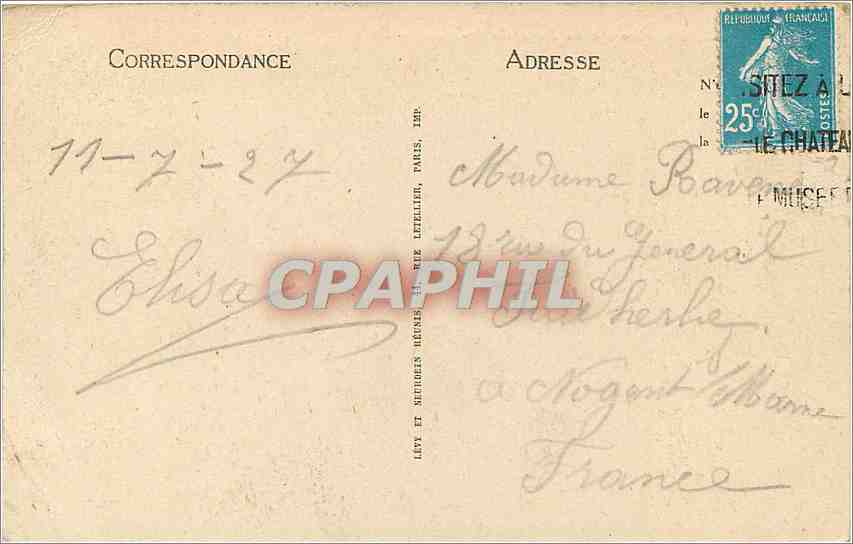 CORRESPONDANCE
11-7-27
Elisa
LÉVY ET NEURDEIN RÉUNIS, 44, RUE LETELLIER, PARIS, IMP.
ADRESSE
RÉPUBLIQUE FRANÇAISE
25c
POSTES
le
la
SITEZ À L
LE CHATEA
MUSEE
Madame
18 rue du General
Faidherbe
a Nogent s/Marne
France
CPAPHIL